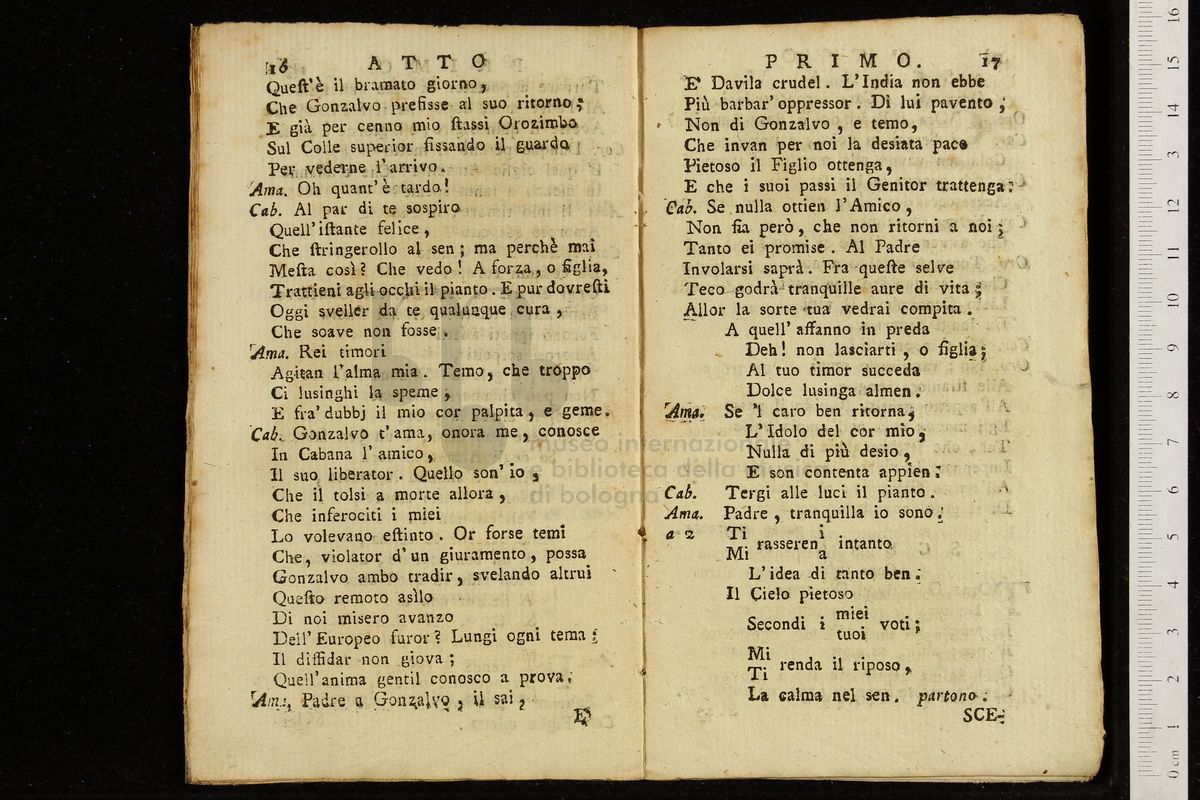 16 ATTO
Quest'è il bramato giorno,
Che Gonzalvo prefisse al suo ritorno;
E già per cenno mio stassi Orozimbo
Sul Colle superior fissando il guardo
Per vederne l'arrivo.
Ama. Oh quant'è tardo!
Cab. Al par di te sospiro
Quell'istante felice,
Che stringerollo al sen; ma perchè mai
Mesta così? Che vedo! A forza, o figlia,
Trattieni agli occhi il pianto. E pur dovresti
Oggi sveller da te qualunque cura,
Che soave non fosse.
Ama. Rei timori
Agitan l'alma mia. Temo, che troppo
Ci lusinghi la speme,
E fra' dubbj il mio cor palpita, e geme.
Cab. Gonzalvo t'ama, onora me, conosce
In Cabana l'amico,
Il suo liberator. Quello son'io,
Che il tolsi a morte allora,
Che inferociti i miei
Lo volevano estinto. Or forse temi
Che, violator d'un giuramento, possa
Gonzalvo ambo tradir, svelando altrui
Questo remoto asìlo
Di noi misero avanzo
Dell'Europeo furor? Lungi ogni tema;
Il diffidar non giova;
Quell'anima gentil conosco a prova.
Ama. Padre a Gonzalvo, il sai,
E'
PRIMO. 17
E' Davila crudel. L'India non ebbe
Più barbar'oppressor. Di lui pavento,
Non di Gonzalvo, e temo,
Che invan per noi la desiata pace
Pietoso il Figlio ottenga,
E che i suoi passi il Genitor trattenga.
Cab. Se nulla ottien l'Amico,
Non fia però, che non ritorni a noi;
Tanto ei promise. Al Padre
Involarsi saprà. Fra queste selve
Teco godrà tranquille aure di vita;
Allor la sorte tua vedrai compita.
A quell'affanno in preda
Deh! non lasciarti, o figlia;
Al tuo timor succeda
Dolce lusinga almen.
Ama. Se 'l caro ben ritorna,
L'Idolo del cor mio,
Nulla di più desio,
E son contenta appien.
Cab. Tergi alle luci il pianto.
Ama. Padre, tranquilla io sono.
a 2 Ti i
rasseren intanto
Mi a
L'idea di tanto ben.
Il Cielo pietoso
miei
Secondi i voti;
tuoi
Mi
renda il riposo,
Ti
La calma nel sen. partono.
SCE-
museo internazionale
e biblioteca della musica
di bologna